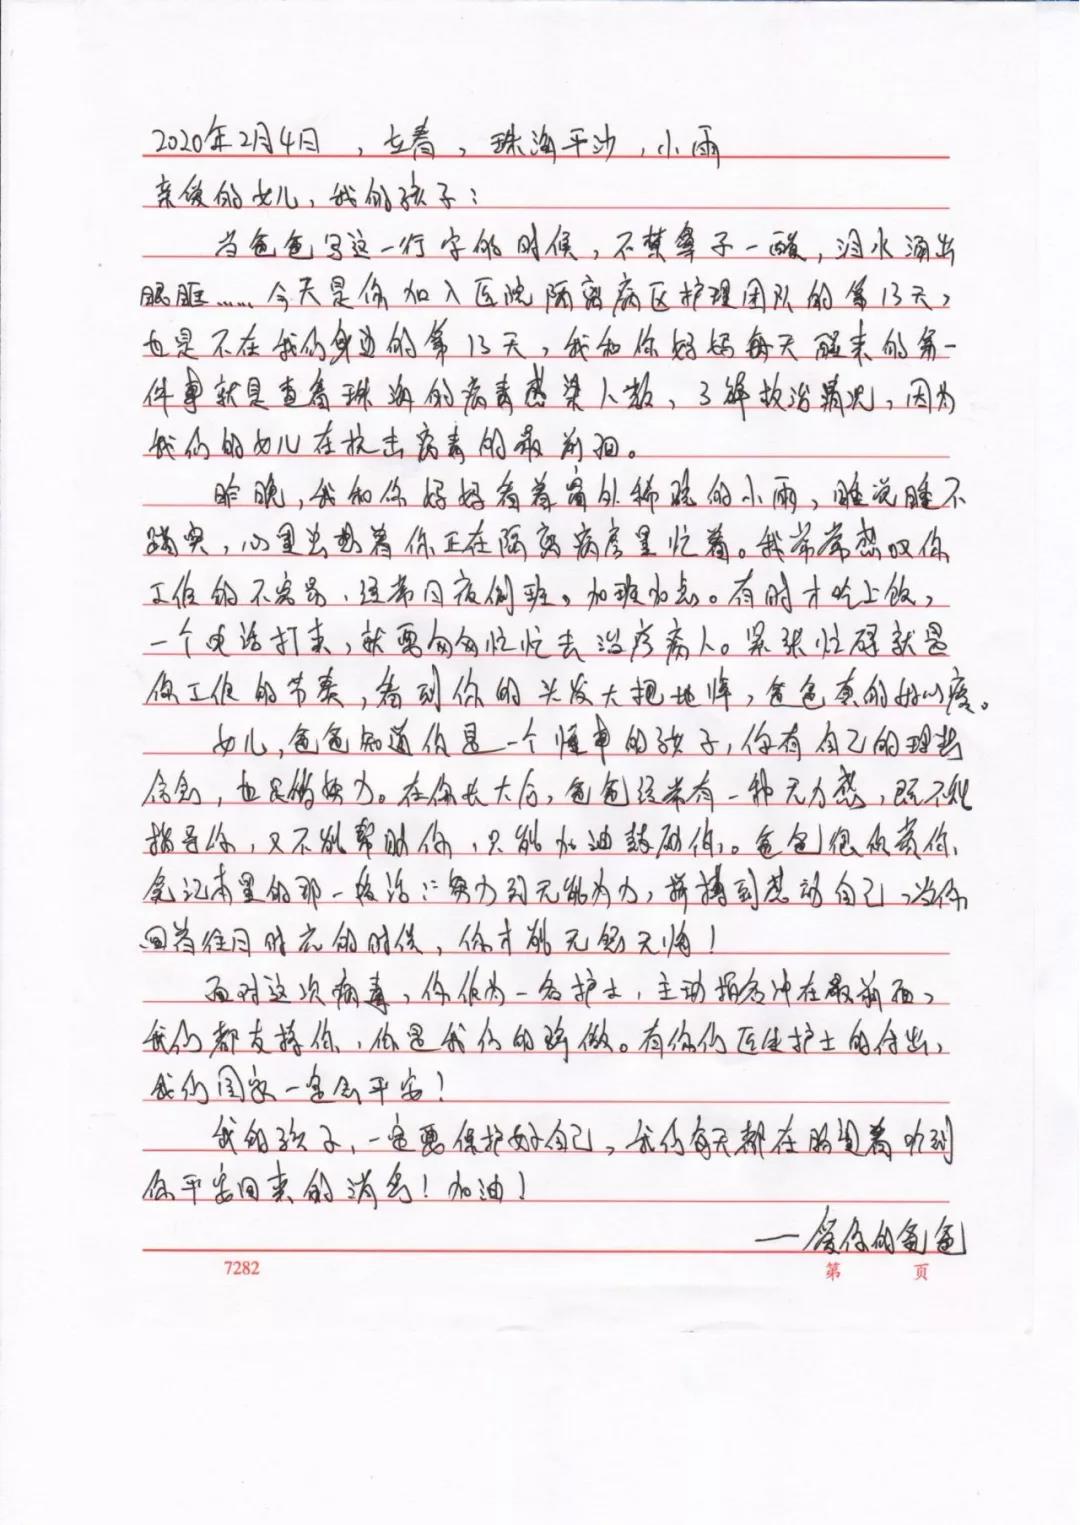 2020年2月4日，立春，珠海平沙，小雨
亲爱的女儿，我的孩子：
当爸爸写这一行字的时候，不禁鼻子一酸，泪水涌出
眼眶……今天是你加入医院隔离病区护理团队的第13天，
也是不在我们身边的第13天，我和你妈妈每天醒来的第一
件事就是查看珠海的病毒感染人数、了解救治情况，因为
我们的女儿在抗击病毒的最前面。
昨晚，我和你妈妈看着窗外稀疏的小雨，睡说睡不
踏实，心里总想着你正在隔离病房里忙着。我常常感叹你
工作的不容易，经常日夜倒班、加班加点。有时才吃上饭，
一个电话打来，就要匆匆忙忙去治疗病人。紧张忙碌就是
你工作的节奏，看到你的头发大把地掉，爸爸真的好心疼。
女儿，爸爸知道你是一个懂事的孩子，你有自己的理想
信念，也足够努力。在你长大后，爸爸经常有一种无力感，既不能
指导你，又不能帮助你，只能加油鼓励你。爸爸很欣赏你
笔记本里的那一段话：努力到无能为力，拼搏到感动自己，当你
回首往日时光的时候，你才能无怨无悔！
面对这次病毒，你作为一名护士，主动报名冲在最前面，
我们都支持你，你是我们的骄傲。有你们医生护士的付出，
我们国家一定会平安！
我的孩子，一定要保护好自己，我们每天都在盼望着听到
你平安回来的消息！加油！
—爱你的爸爸
7282 第 页